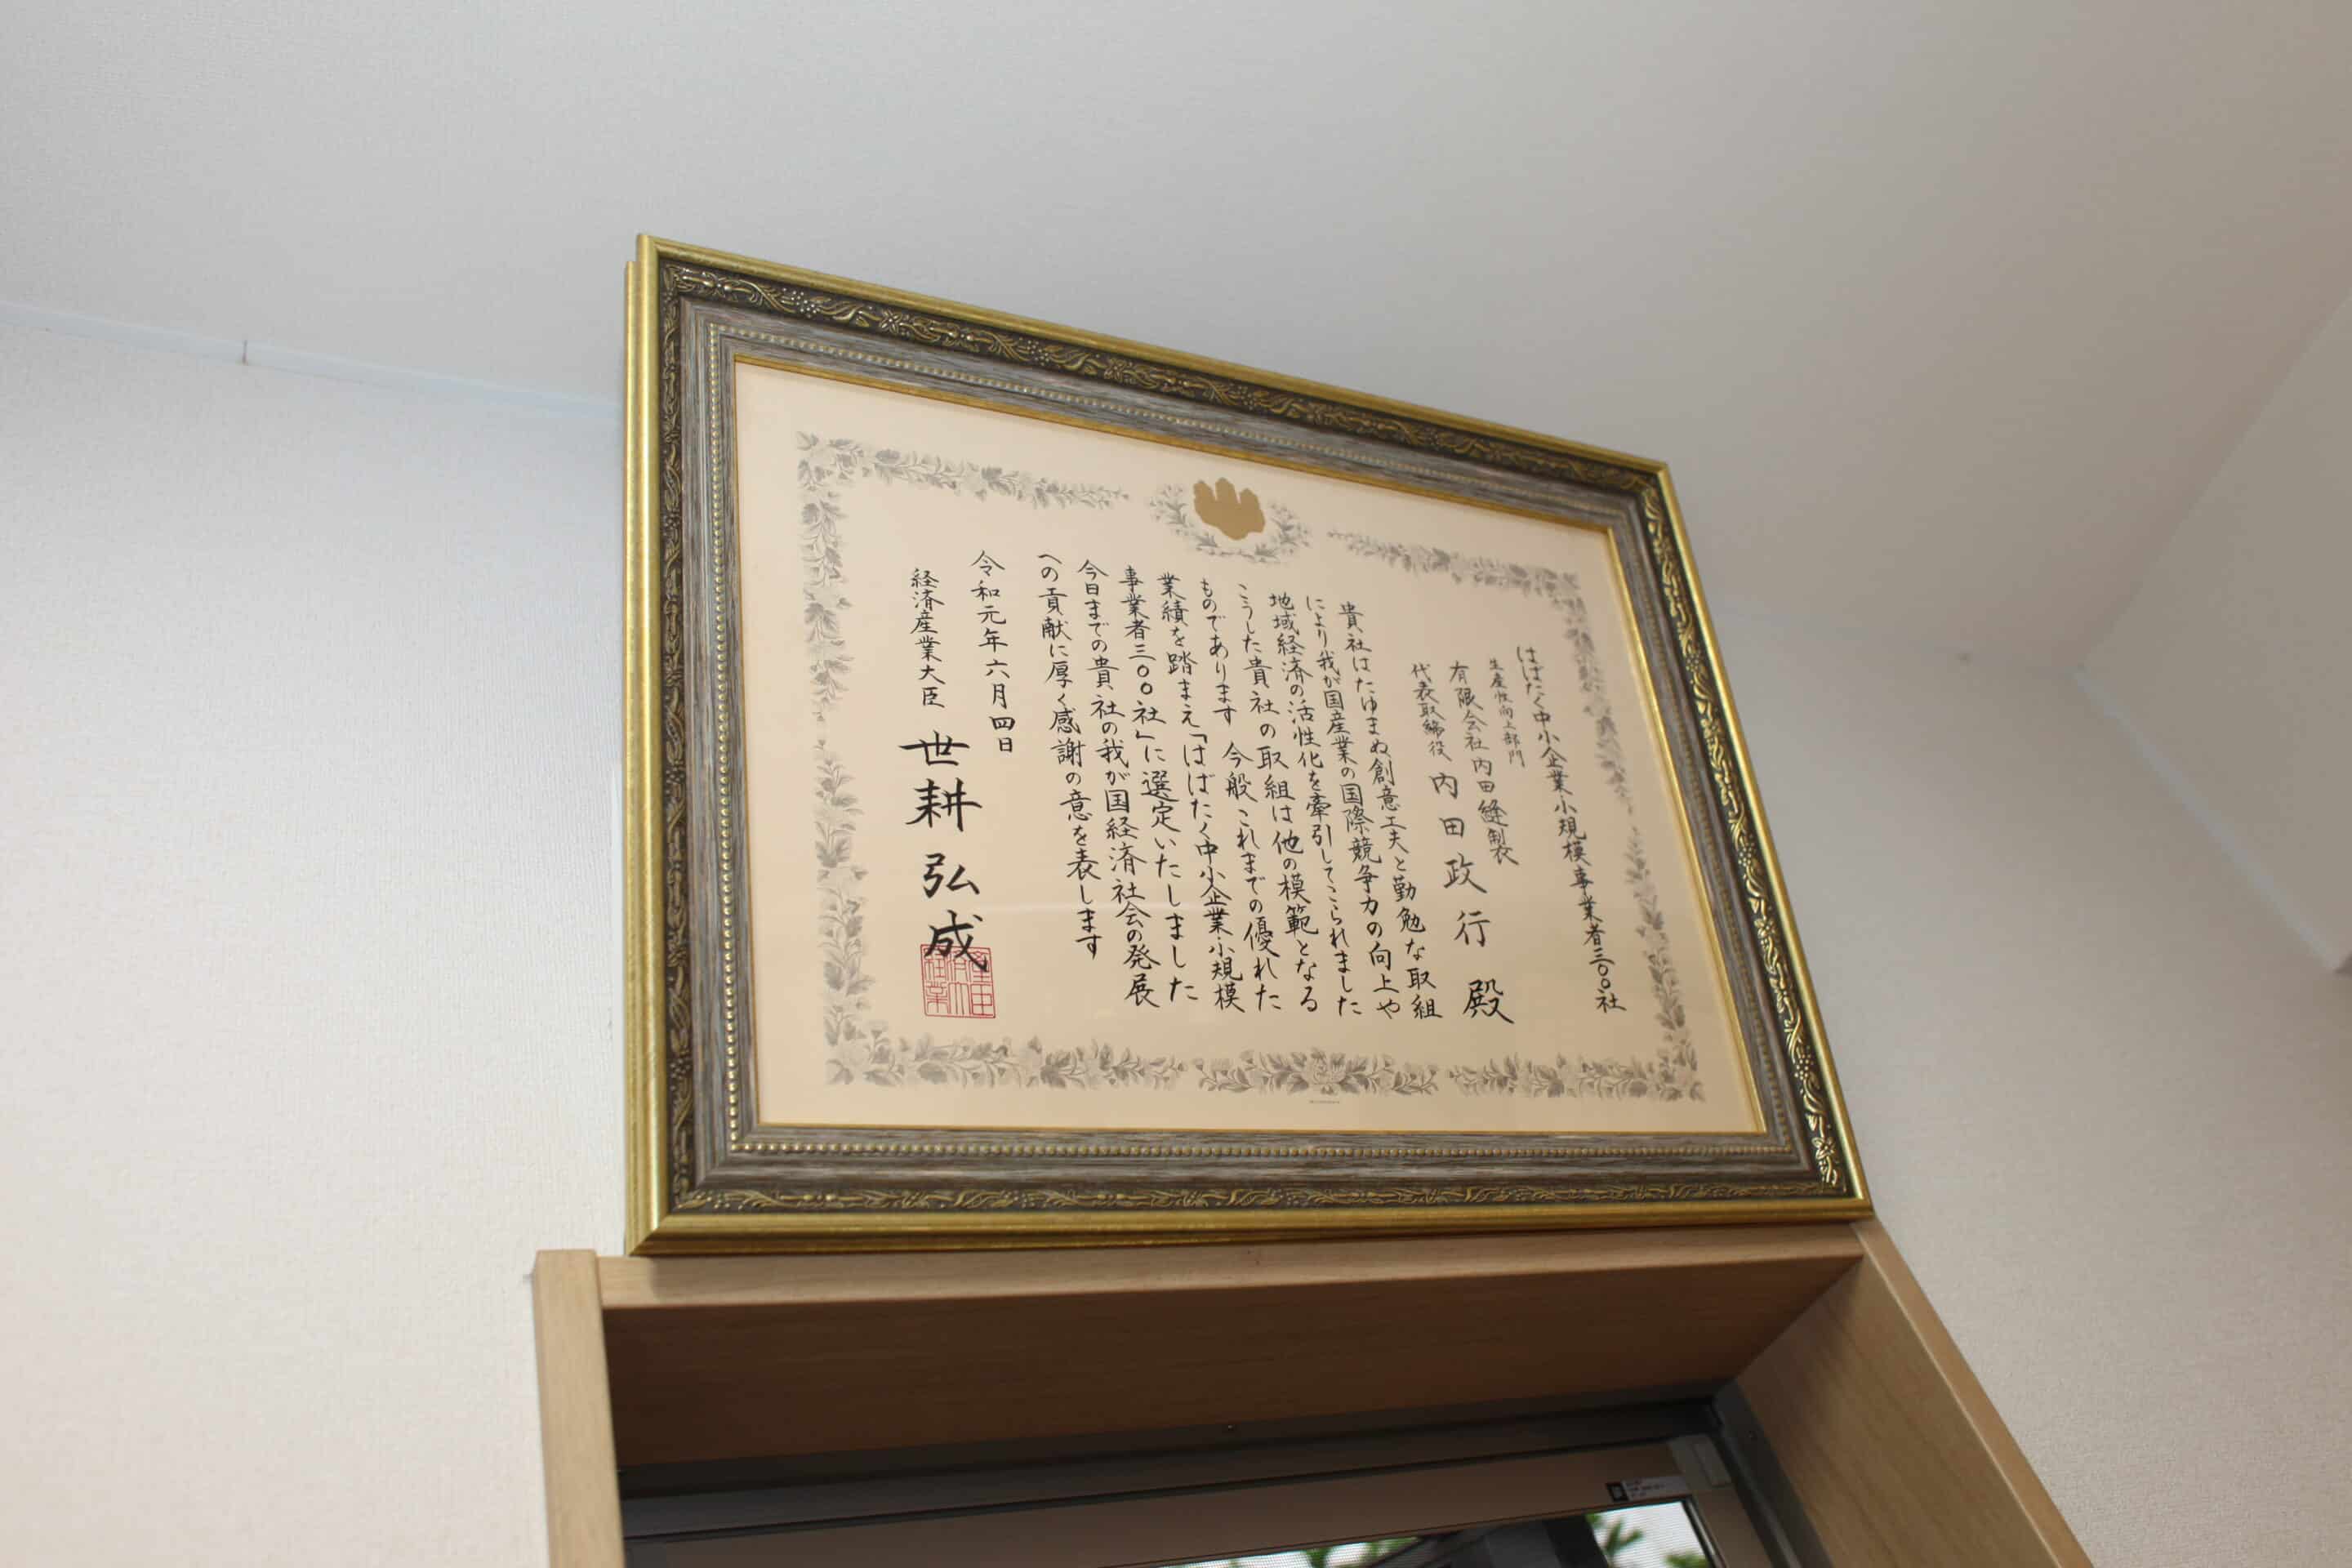 はばたく中小企業・小規模事業者三〇〇社
生産性向上部門
有限会社内田縫製
代表取締役 内田政行 殿
貴社はたゆまぬ創意工夫と勤勉な取組
により我が国産業の国際競争力の向上や
地域経済の活性化を牽引してこられました
こうした貴社の取組は他の模範となる
ものであります 今般これまでの優れた
業績を踏まえ「はばたく中小企業・小規模
事業者三〇〇社」に選定いたしました
今日までの貴社の我が国経済社会の発展
への貢献に厚く感謝の意を表します
令和元年六月四日
経済産業大臣 世耕弘成